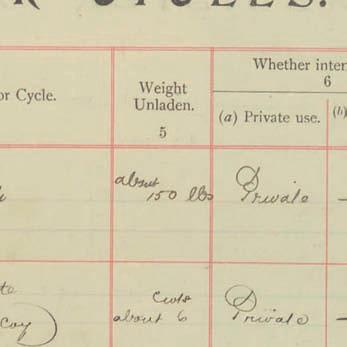 R CYCLES.
or Cycle.
Weight
Unladen.
5
Whether inter
6
(a) Private use.
(b)
about
150 lbs
Private
cwts
about 6
Private